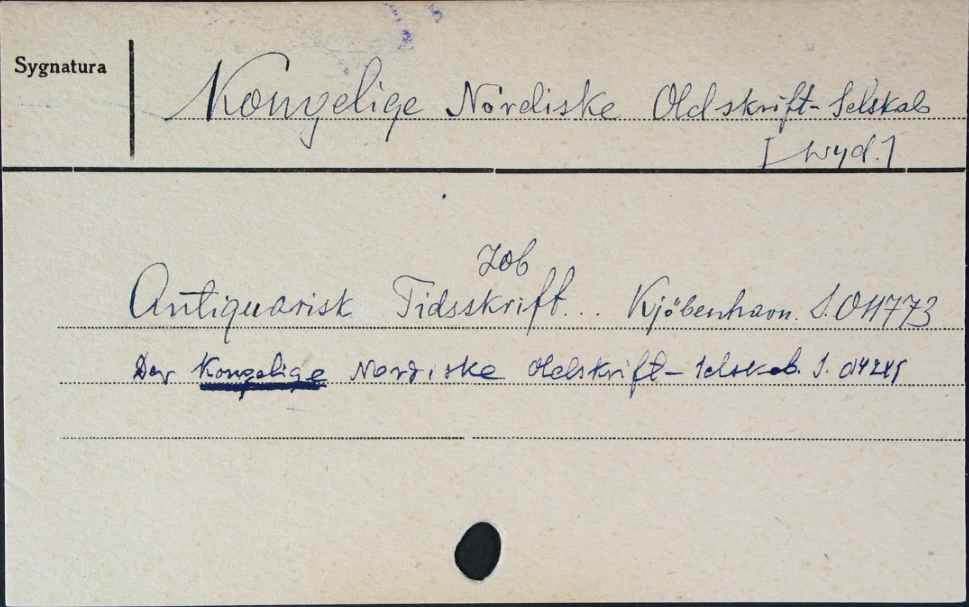 Sygnatura
Kongelige Nordiske Oldskrift-Selskab
[wyd.]
Zob
Antiquarisk Tidsskrift... Kjöbenhavn. S.
Der Kongelige Nordiske Oldskrift-Selskab. S.